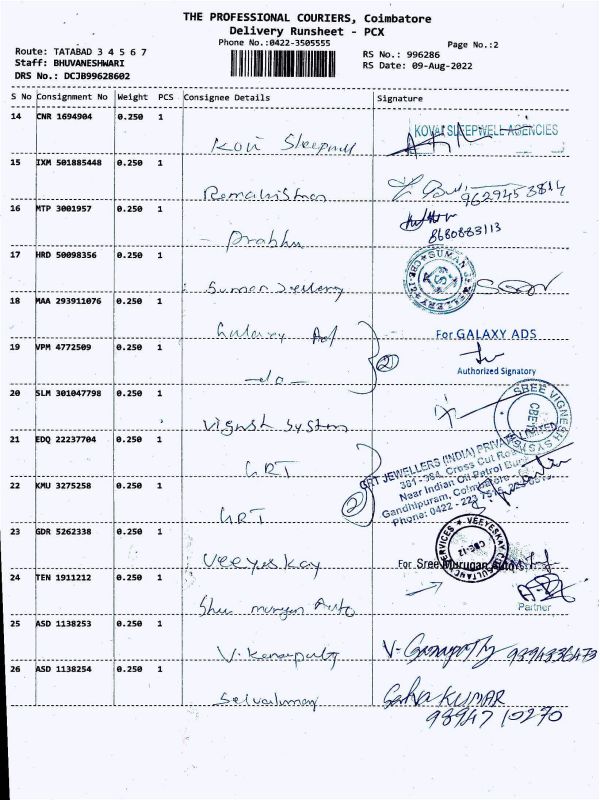 THE PROFESSIONAL COURIERS, Coimbatore
Delivery Runsheet - PCX
Phone No.:0422-3505555
Page No.:2
Route: TATABAD 3 4 5 6 7
Staff: BHUVANESHWARI
DRS No.: DCJB99628602
RS No.: 996286
RS Date: 09-Aug-2022
S No Consignment No Weight PCS Consignee Details Signature
14 CNR 1694904 0.250 1
KOVAI SLEEPWELL AGENCIES
15 IXM 501885448 0.250 1
Ramakrishnan
9629453814
16 MTP 3001957 0.250 1
- Prabhu
8680883113
17 HRD 50098356 0.250 1
Suman Jewellery
18 MAA 293911076 0.250 1
Galaxy Ad
For GALAXY ADS
19 VPM 4772509 0.250 1
-do-
2
Authorized Signatory
20 SLM 301047798 0.250 1
Vignesh System
SREE VIGNESH SYSTEMS
CBE-12
21 EDQ 22237704 0.250 1
GRT
GRT JEWELLERS (INDIA) PRIVATE LIMITED
Cross Cut Road
Near Indian Oil Petrol Bunk
Gandhipuram, Coimbatore
Phone: 0422 - 223
22 KMU 3275258 0.250 1
GRT
2
23 GDR 5262338 0.250 1
Veeyeskay
VEEYESKAY CONSULTANCY SERVICES
CBE-12
For Sree Murugan Autos
24 TEN 1911212 0.250 1
Shree murugan Auto
Partner
25 ASD 1138253 0.250 1
V. Kanapathy
V- Ganapathy
26 ASD 1138254 0.250 1
Selvakumar
Selva KUMAR
98947 10270